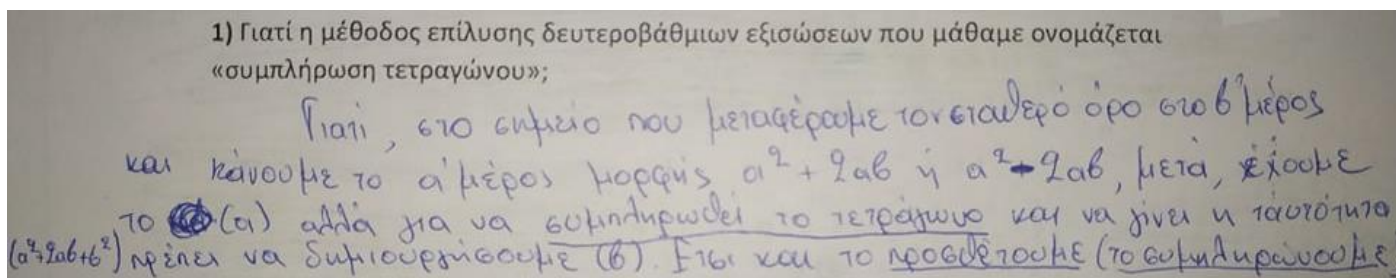 1) Γιατί η μέθοδος επίλυσης δευτεροβάθμιων εξισώσεων που μάθαμε ονομάζεται
«συμπλήρωση τετραγώνου»;
Γιατί, στο σημείο που μεταφέρουμε τον σταθερό όρο στο β' μέρος
και κάνουμε το α' μέρος μορφής α² + 2αβ ή α² - 2αβ, μετά, έχουμε
το (α) αλλά για να συμπληρωθεί το τετράγωνο και να γίνει η ταυτότητα
(α²+2αβ+β²) πρέπει να δημιουργήσουμε (β). Έτσι και το προσθέτουμε (το συμπληρώνουμε